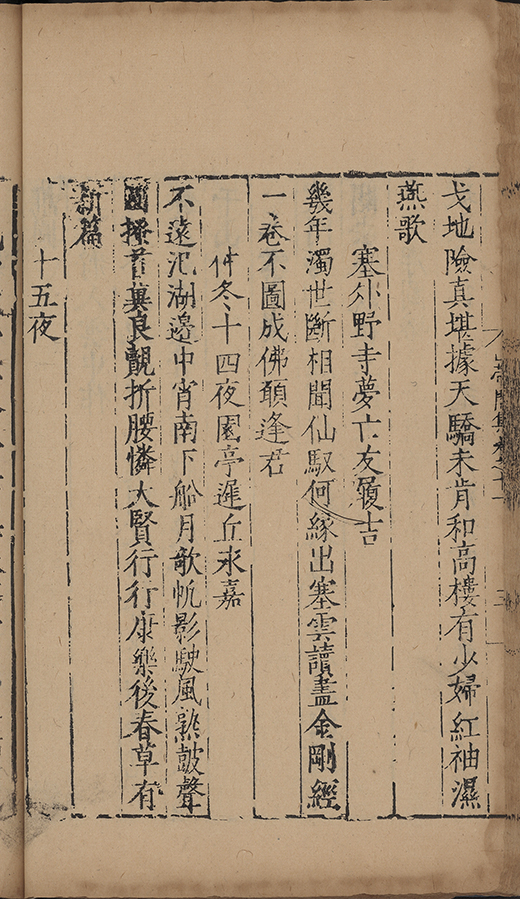 戈地險真堪據天驕未肯和高樓有少婦紅袖濕
燕歌
塞外野寺夢亡友履吉
幾年濁世斷相聞仙馭何緣出塞雲讀盡金剛經
一卷不圖成佛願逢君
仲冬十四夜園亭遲丘永嘉
不遠汜湖邊中宵南下船月歌帆影駛風熟皷聲
良覿折腰憐大賢行行康樂後春草有
新篇
十五夜